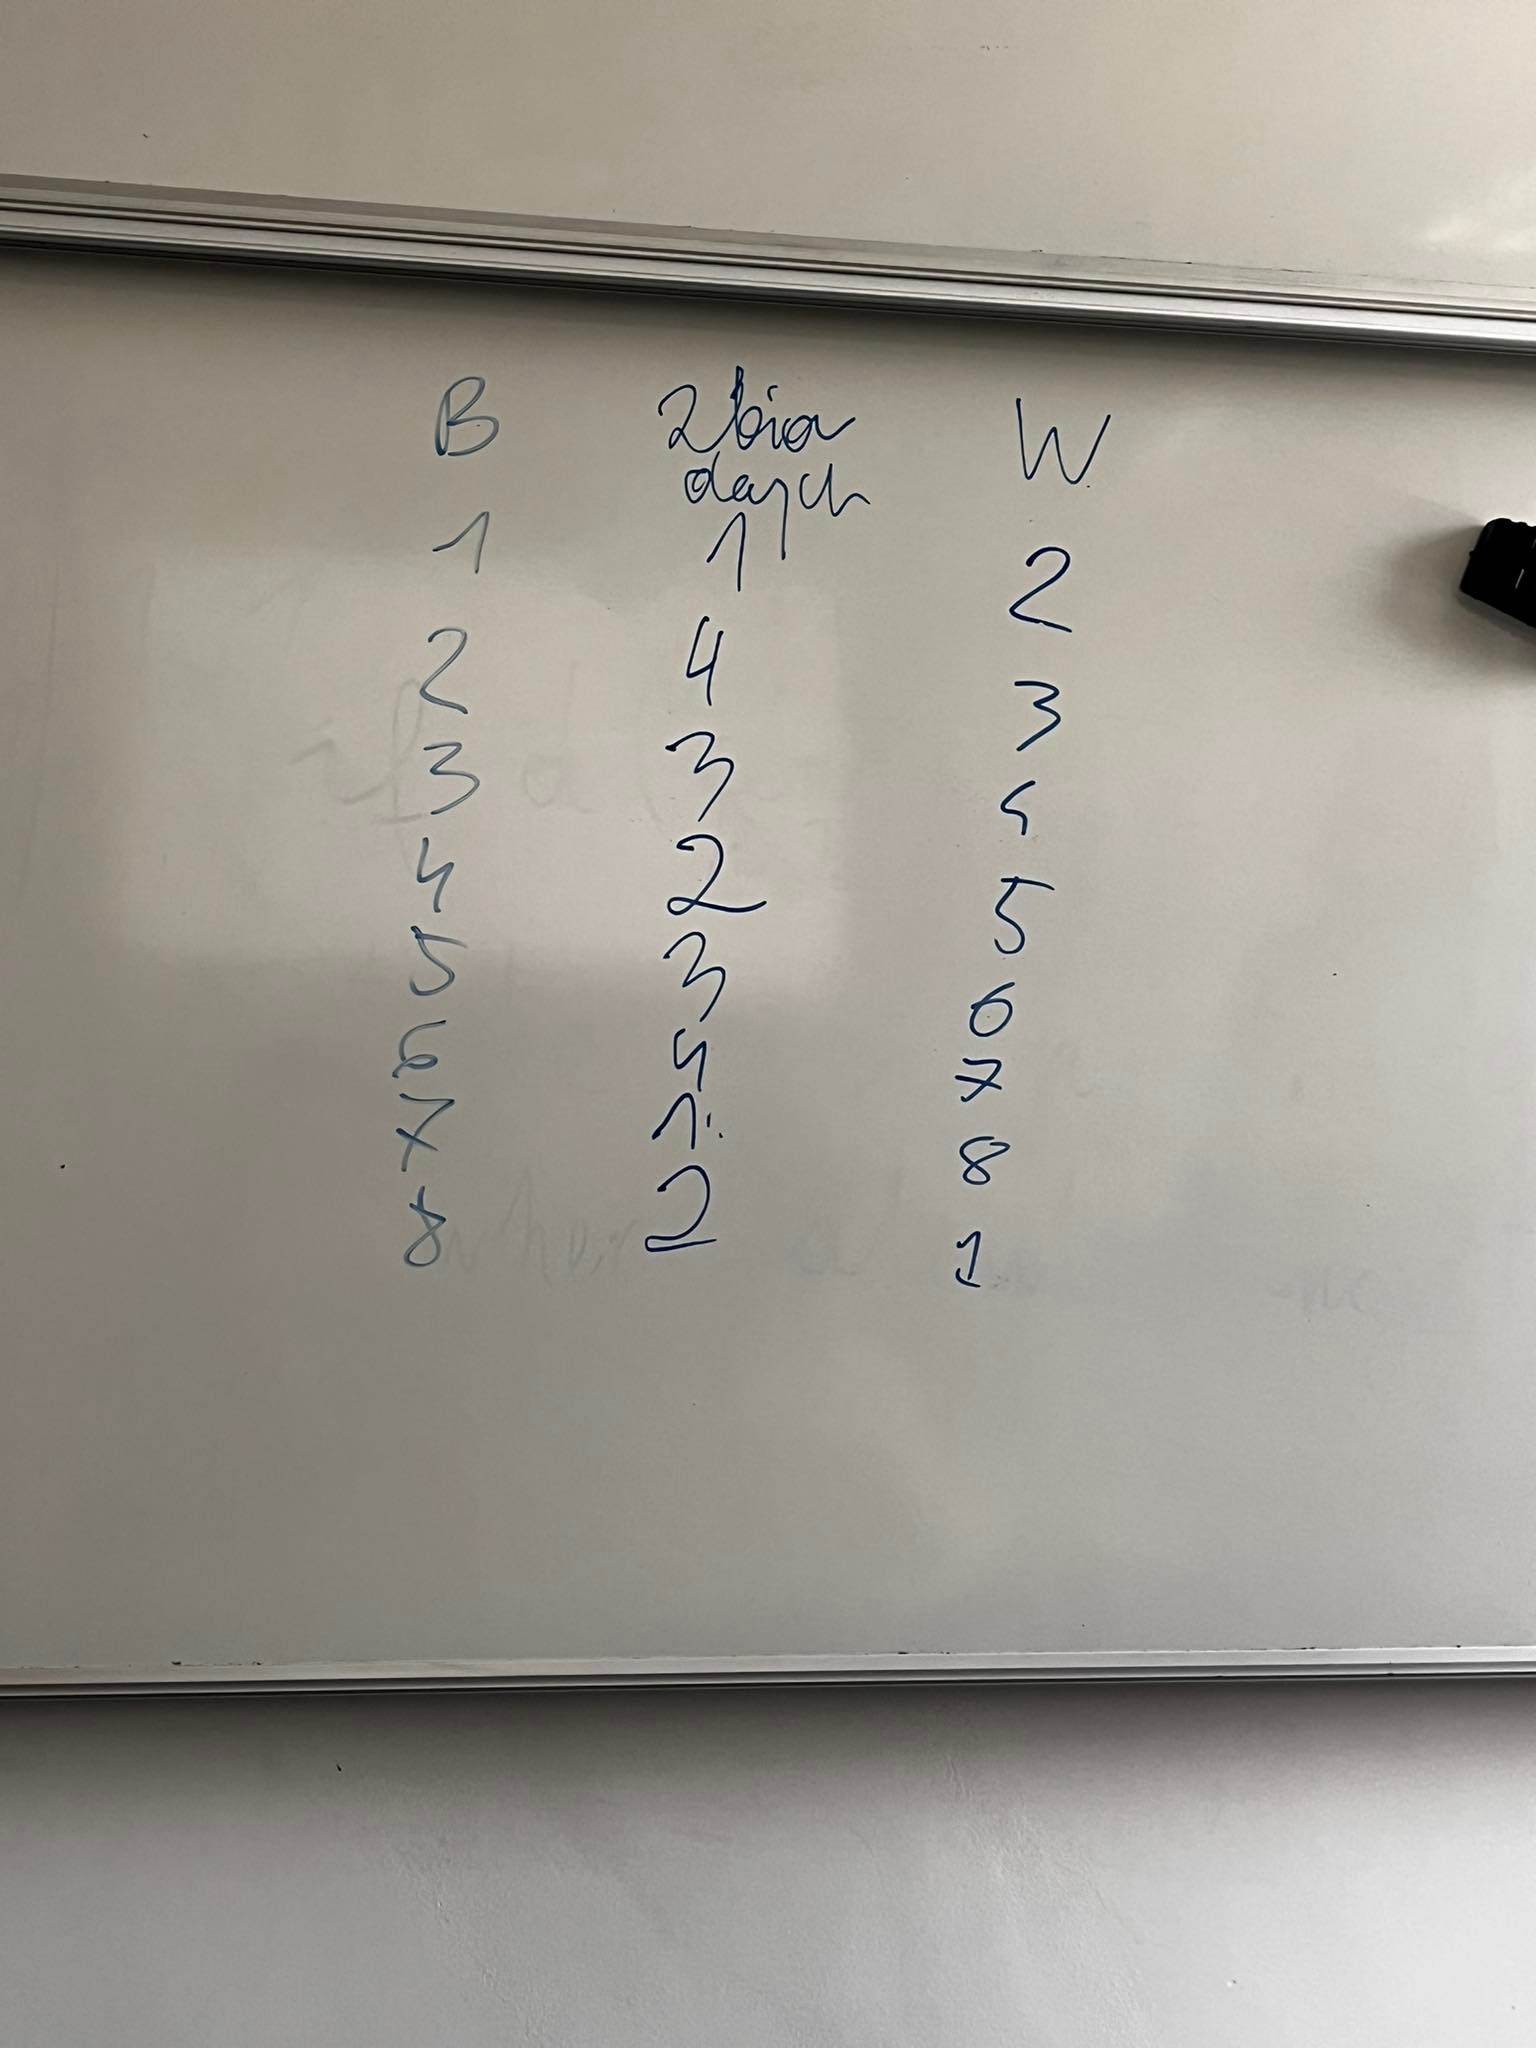 B Zbiór W
danych
1 1 2
2 4 3
3 3 4
4 2 5
5 3 6
6 4 7
7 1 8
8 2 1